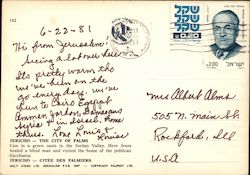 142
6-22-81
Hi from Jerusalem.
Seeing a lot over here
Its pretty warm tho
we've been on the
go every day. we've
been to Cairo Egypt
Ammon Jordon, Damascus
Syria & in Israel. Some
Love Louise
JERICHO — THE CITY OF PALMS
Lies in a green oasis in the Jordan Valley. Here Jesus
healed a blind man and visited the house of the publican
Zacchaeus.
JERICHO — CITEE DES PALMIERS.
HOLY VIEWS LTD. JERUSALEM P.O.B. COPYRIGHT PALPHOT LTD.
שקל
שקל
0.20
2.00
ישראל
Mrs Albert Alms.
505 N. Main St
Rockford, Ill
U.S.A